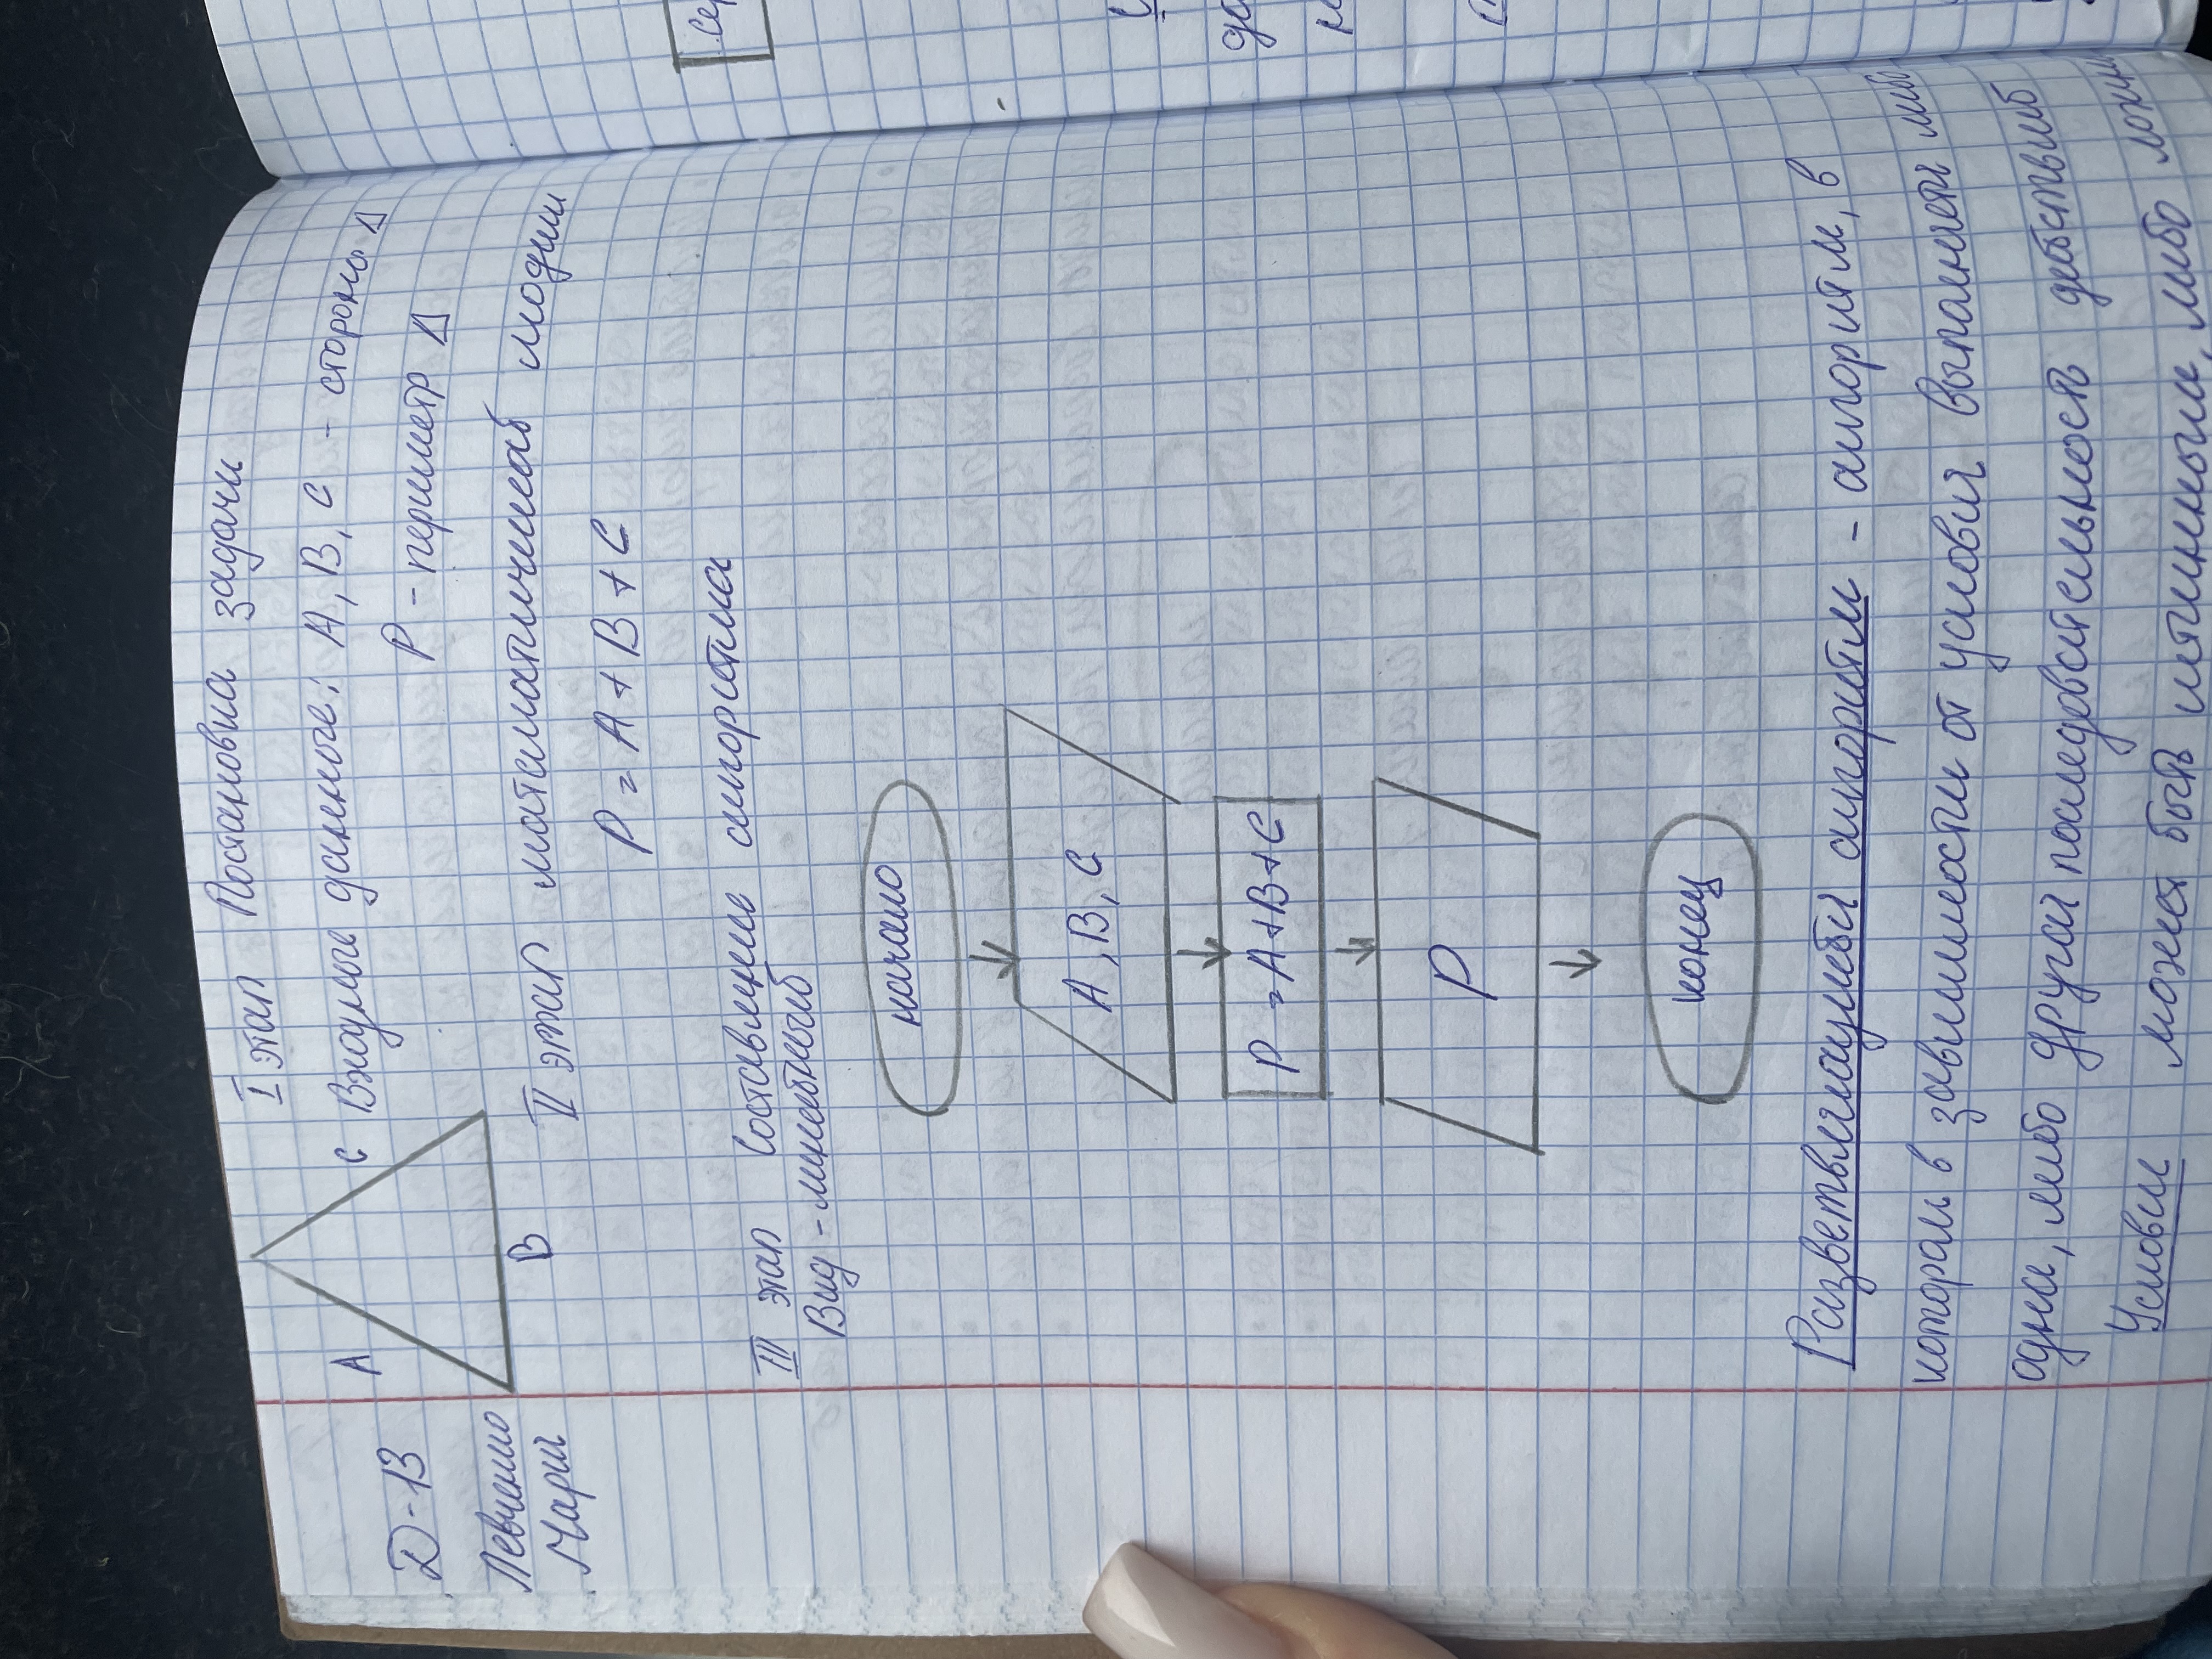 I этап Постановка задачи
А
С
В
Входные данные: А, В, С - стороны Δ
Р - периметр Δ
D-13
Левченко
Мария
II этап математической модели
Р = А + В + С
III этап Составление алгоритма
Вид - линейный
начало
А, В, С
Р = А+В+С
Р
конец
Разветвляющий алгоритм - алгоритм, в
котором в зависимости от условия выполняется либо
одна, либо другая последовательность действий
Условие может быть истинным, либо